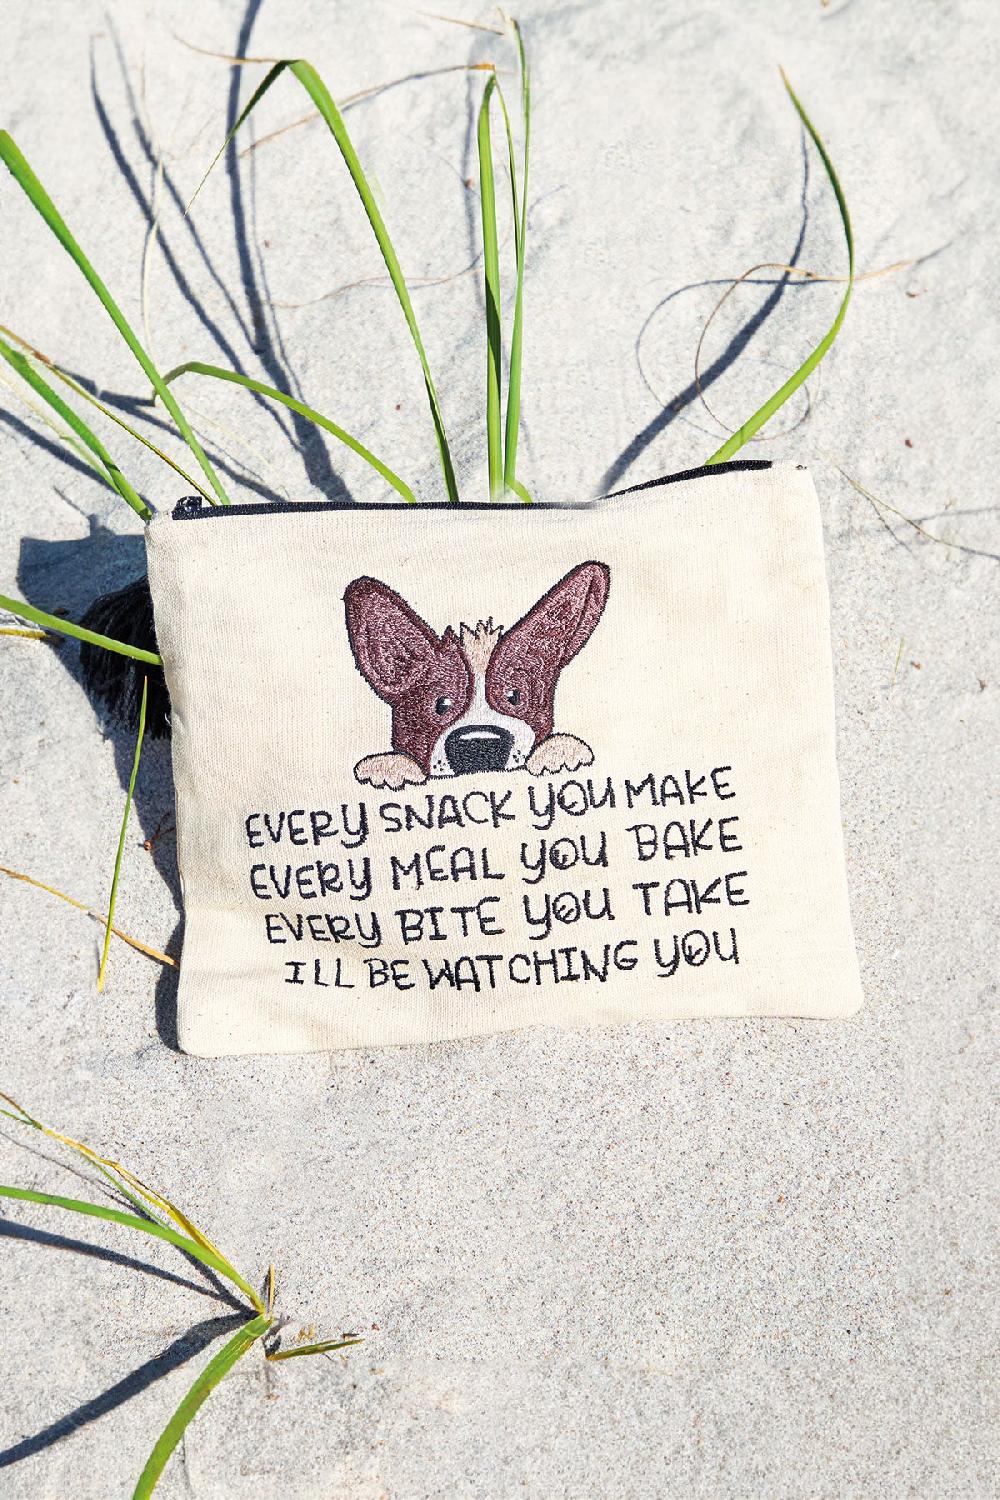 EVERY SNACK YOU MAKE
EVERY MEAL YOU BAKE
EVERY BITE YOU TAKE
ILL BE WATCHING YOU